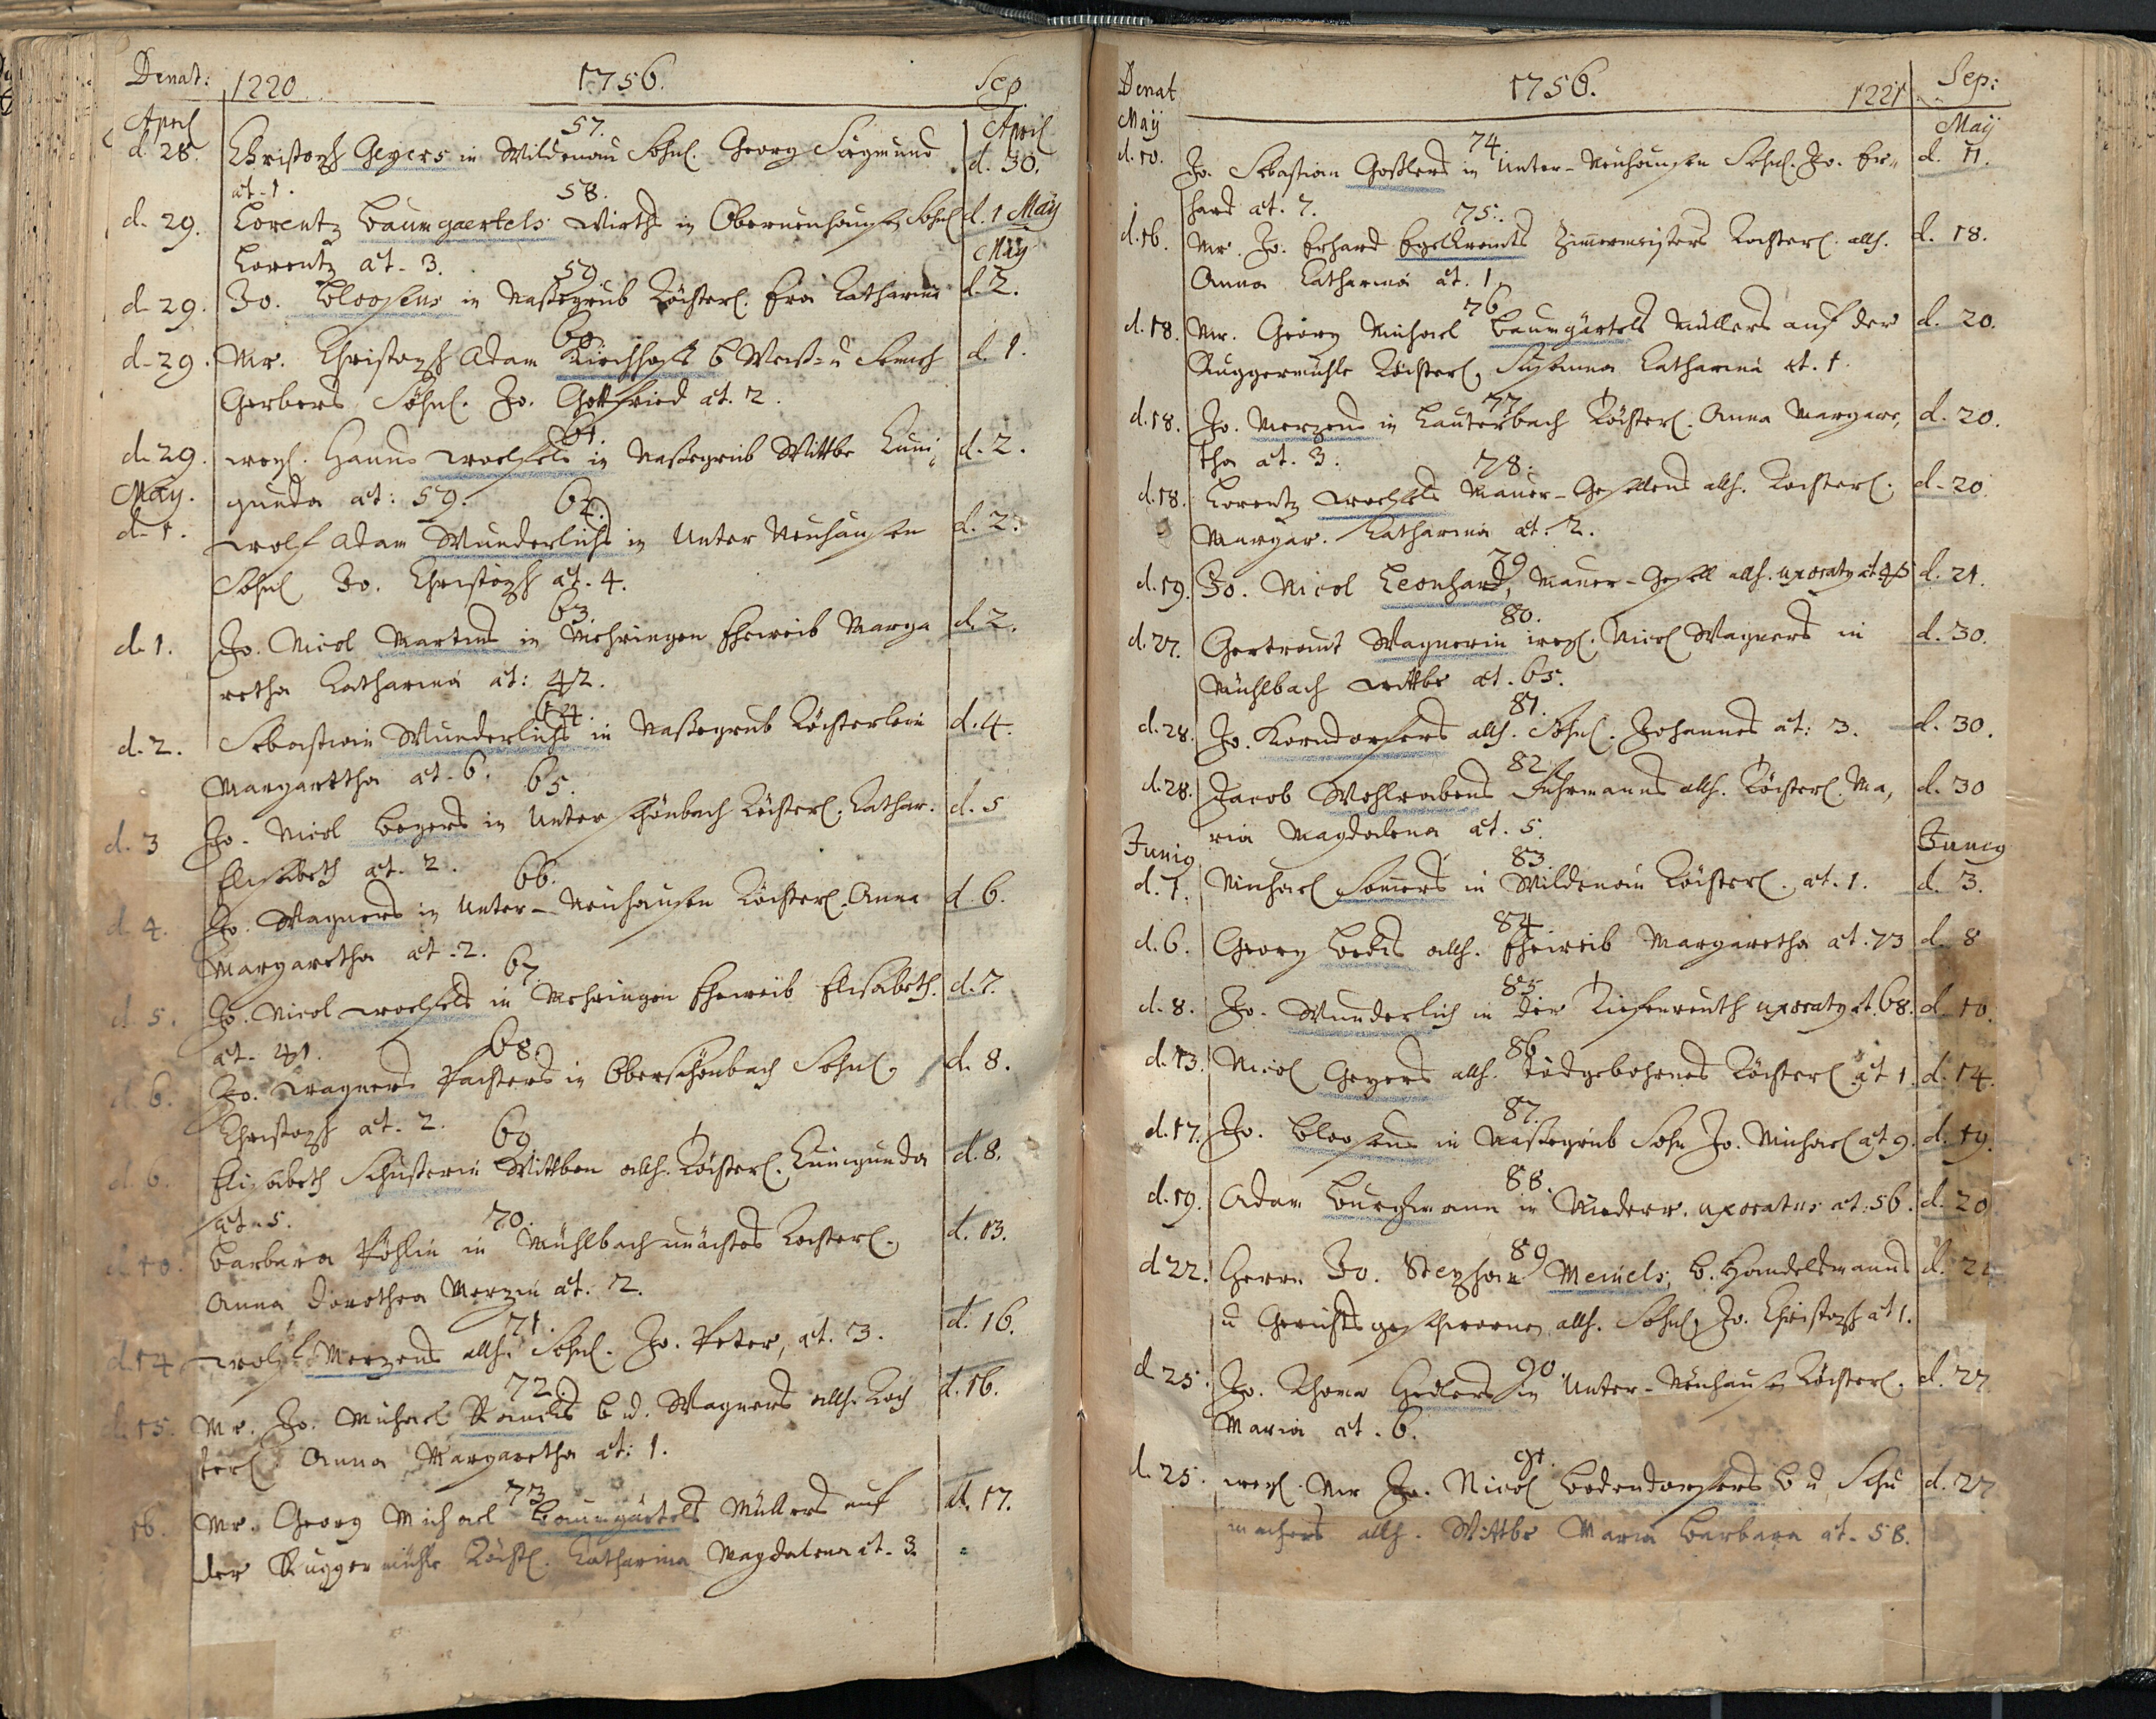 Denat: 1220 1756. Sep
April 57. April
d. 28. Christoph Geyers in Wildenau Söhnl. Georg Siegmund d. 30.
at. 1. 58.
d. 29. Lorentz Baumgaertels Wirths in Oberneuhausen Söhnl d. 1 May
Lorentz at. 3. 59. May
d. 29. Jo. Bloosens in Naßegrub Töchterl. Eva Catharina d. 2.
60.
d. 29. Mr. Christoph Adam Kirchhofs b Weiß- u Saemisch d. 1.
Gerbers Söhnl. Jo. Gottfried at. 2.
61.
d. 29. weyl. Hanns Woelfels in Naßegrub Wittbe Cuni- d. 2.
May. gunda at: 59. 62.
d. 1. Wolf Adam Wunderlichs in Unter Neuhausen d. 2.
Söhnl Jo. Christoph at. 4.
63.
d. 1. Jo. Nicol Martins in Mehringen Eheweib Marga d. 2.
retha Catharina at: 42.
64.
d. 2. Sebastian Wunderlichs in Naßegrub Töchterlein d. 4.
Margaretha at. 6. 65.
d. 3 Jo. Nicol Beyers in Unterschönbach Töchterl. Cathar. d. 5
Elisabeth at. 2. 66.
d. 4. Jo. Wagners in Unter-Neuhausen Töchterl. Anna d. 6.
Margaretha at. 2. 67
d. 5. Jo. Nicol Woelfels in Mehringen Eheweib Elisabeth. d. 7.
at. 41. 68.
d. 6. Jo. Wagners Pachters in Oberschönbach Söhnl. d. 8.
Christoph at. 2. 69
d. 6. Elisabeth Schusterin Wittben allh. Töchterl. Cunigunda d. 8.
at. 5. 70.
d. 10. Barbara Pöhlin in Mühlbach unächtes Töchterl. d. 13.
Anna Dorothea Merzin at. 2.
71.
d. 14 Wolf Merzens allh. Söhnl. Jo. Peter, at. 3. d. 16.
72.
d. 15. Mr. Jo. Michael b u. Wagners allh. Töch d. 16.
terl. Anna Margaretha at: 1.
73
16. Mr. Georg Michael Baumgärtels Müllers auf d. 17.
der Ruggermühle Töchtl. Catharina Magdalena at. 3.
Denat 1756. 1221 Sep:
May 74. May
d. 10. Jo. Sebastian Goßlers in Unter-Neuhausen Söhnl. Jo. Er- d. 11.
hard at. 7. 75.
d. 16. Mr. Jo. Erhard Egelkrauts Zimmermeisters Töchterl. allh. d. 18.
Anna Catharina at. 1.
76
d. 18. Mr. Georg Michael Baumgärtels Müllers auf der d. 20.
Ruggermühle Töchterl. Susanna Catharina at. 1.
77
d. 18. Jo. Merzens in Lauterbach Töchterl. Anna Margare, d. 20.
tha at. 3. 78.
d. 18. Lorentz Woelfels Mauer-Gesellens allh. Töchterl. d. 20
Margar. Catharina at. 2.
79
d. 19. Jo. Nicol Leonhard, Mauer-Gesell allh. uxoratg at 45 d. 21.
80.
d. 27. Gertraut Wagnerin weyl. Nicol Wagners in d. 30.
Mühlbach Wittbe at. 65.
81.
d. 28. Jo. Korndorfers allh. Söhnl. Johannes at: 3. d. 30.
82.
d. 28. Jacob Wohlrabens Fuhrmanns allh. Töchterl. Ma, d. 30
ria Magdalena at. 5.
Junig 83 Junig
d. 1. Michael Somers in Wildenau Töchterl. at. 1. d. 3.
84.
d. 6. Georg Becks allh. Eheweib Margaretha at. 73 d. 8
85
d. 8. Jo. Wunderlich in der Tiefenreuth uxoratg at. 68. d. 10.
86
d. 13. Nicol Geyers allh. todgebohrnes Töchterl at 1. d. 14.
87.
d. 17. Jo. Bloosens in Naßegrub Sohn Jo. Michael at 9. d. 19.
88.
d. 19. Adam Burgmann in Niederr. uxoratus at. 56. d. 20
89
d 22. Herrn Jo. Stephan Meinels, b. Handelsmanns d. 24
u Gerichtsgeschworner, allh. Söhnl. Jo. Christoph at 1.
90
d 25. Jo. Thoma Hedlers in Unter-Neuhausen Töchterl. d. 27
Maria at. 6.
91.
d. 25. weyl. Mr Jo. Nicol Bodendorfers b u Schu d. 27
machers allh. Wittbe Maria Barbara at. 58.